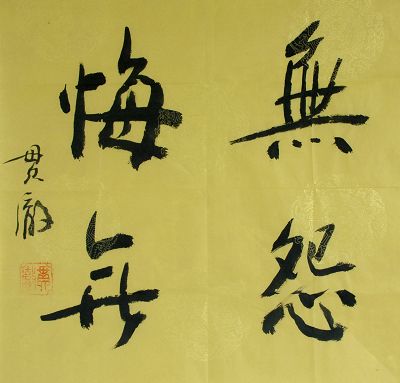 無怨
悔無
贯澈